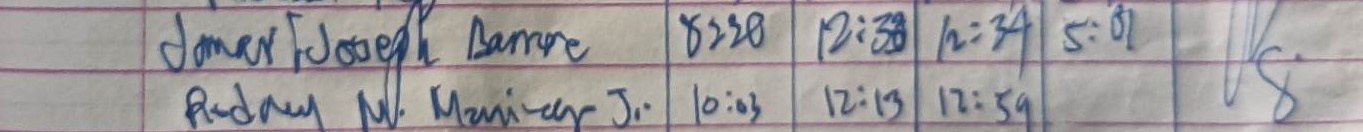 Jomar Joseph 8220 12:38 12:34 5:01
Rodney M. Jr. 10:03 12:13 12:59
8